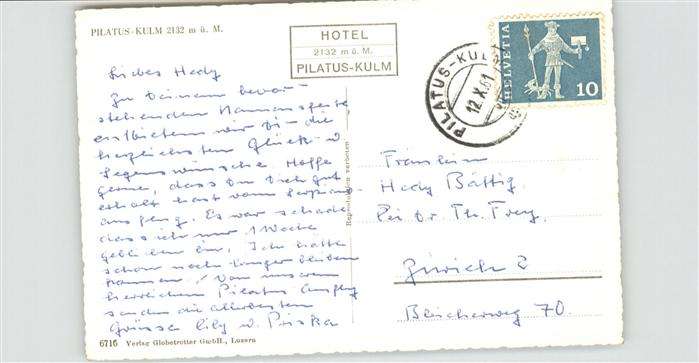 PILATUS-KULM 2132 m ü. M.
HOTEL
2132 m ü. M.
PILATUS-KULM
PILATUS-KULM
12.X.61
HELVETIA
10
Liebes Hedy
Zu Deinem bevor-
stehenden Namensfeste
entbieten wir Dir die
herzlichsten Glück- u
Segenswünsche. Hoffe
gerne, dass Du Dich gut
erholt hast vom
Es war schade
dass ich nur 1 Woche
geblieben bin. Ich hätte
schon noch länger bleiben
können! Von unserem
herrlichen Pilatus Ausflug
senden die allerbesten
Grüsse Lily u. Priska
Reproduktion verboten
Fräulein
Hedy Bättig
bei Dr. Th. Frey
Zürich 2
Bleicherweg 70.
6716 Verlag Globetrotter GmbH., Luzern